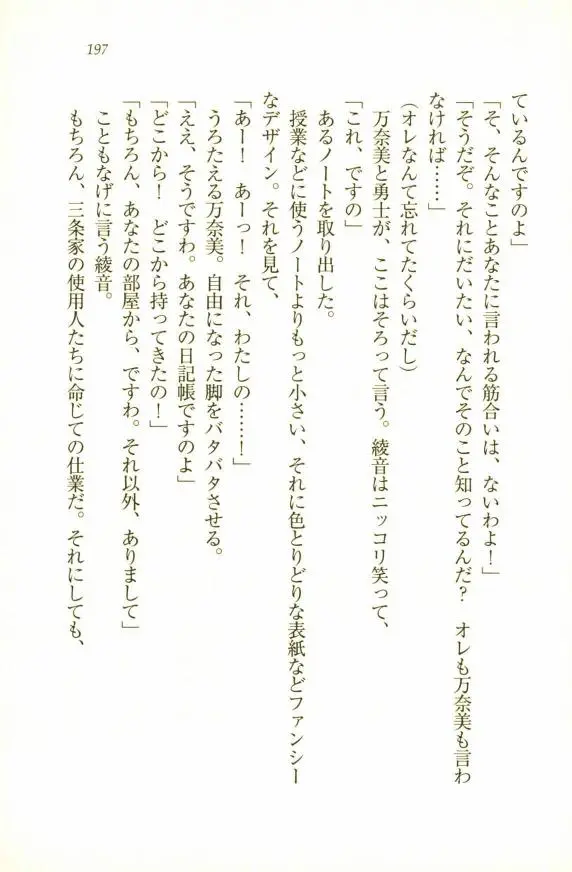 197
ているんですのよ」
「そ、そんなことあなたに言われる筋合いは、ないわよ！」
「そうだぞ。それにだいたい、なんでそのこと知ってるんだ？　オレも万奈美も言わ
なければ……」
(オレなんて忘れてたくらいだし)
万奈美と勇士が、ここはそろって言う。綾音はニッコリ笑って、
「これ、ですの」
あるノートを取り出した。
授業などに使うノートよりもっと小さい、それに色とりどりな表紙などファンシー
なデザイン。それを見て、
「あー！　あーっ！　それ、わたしの……！」
うろたえる万奈美。自由になった脚をバタバタさせる。
「ええ、そうですわ。あなたの日記帳ですのよ」
「どこから！　どこから持ってきたの！」
「もちろん、あなたの部屋から、ですわ。それ以外、ありまして」
こともなげに言う綾音。
もちろん、三条家の使用人たちに命じての仕業だ。それにしても、